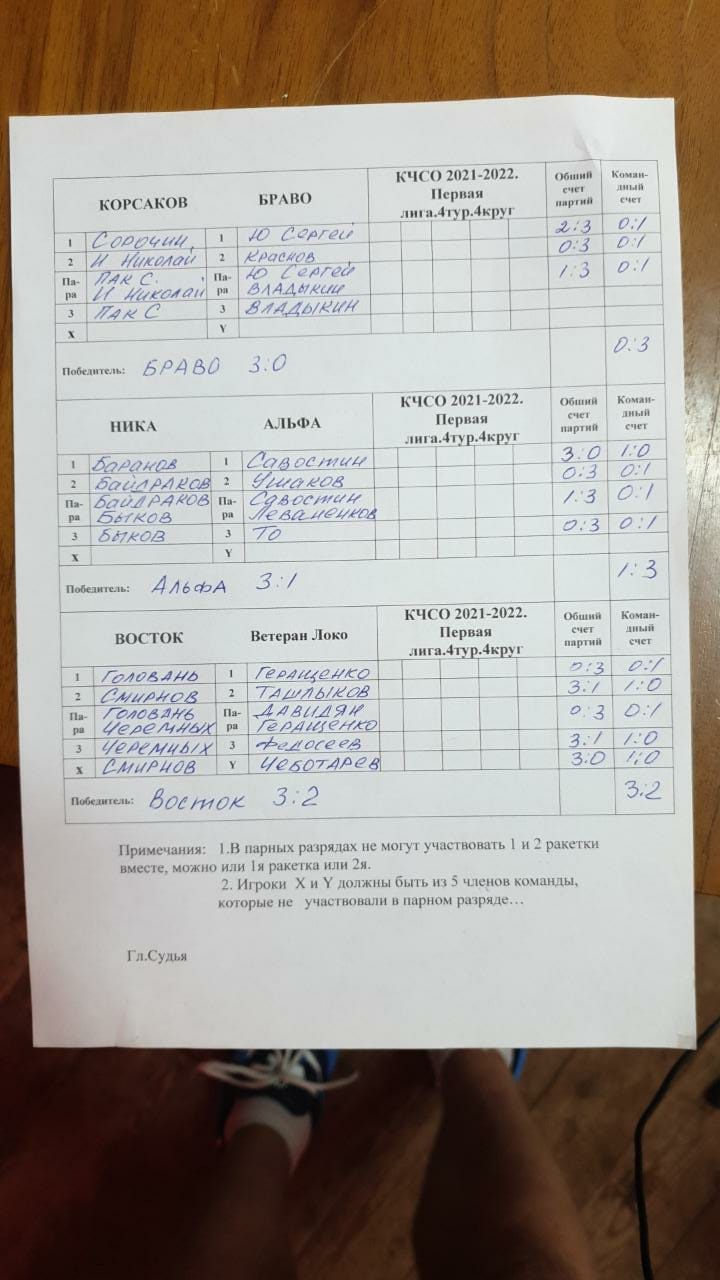 КОРСАКОВ БРАВО КЧСО 2021-2022. Первая лига.4тур.4круг Общий счет партий Коман-дный счет
1 Сорочин 1 Ю Сергей 2:3 0:1
2 И Николай 2 Краснов 0:3 0:1
Па-ра ПАК С. Па-ра Ю Сергей 1:3 0:1
И Николай Владыкин
3 ПАК С 3 ВЛАДЫКИН
X Y
Победитель: БРАВО 3:0 0:3
НИКА АЛЬФА КЧСО 2021-2022. Первая лига.4тур.4круг Общий счет партий Коман-дный счет
1 Баранов 1 Савостин 3:0 1:0
2 Байдраков 2 Ушаков 0:3 0:1
Па-ра Байдраков Па-ра Савостин 1:3 0:1
Быков Леваненков
3 Быков 3 То 0:3 0:1
X Y
Победитель: Альфа 3:1 1:3
ВОСТОК Ветеран Локо КЧСО 2021-2022. Первая лига.4тур.4круг Общий счет партий Коман-дный счет
1 Головань 1 Геращенко 0:3 0:1
2 Смирнов 2 Ташлыков 3:1 1:0
Па-ра Головань Па-ра Давидян 0:3 0:1
Черемных Геращенко
3 Черемных 3 Федосеев 3:1 1:0
X Смирнов Y Чеботарев 3:0 1:0
Победитель: Восток 3:2 3:2
Примечания: 1.В парных разрядах не могут участвовать 1 и 2 ракетки
вместе, можно или 1я ракетка или 2я.
2. Игроки X и Y должны быть из 5 членов команды,
которые не участвовали в парном разряде…
Гл.Судья